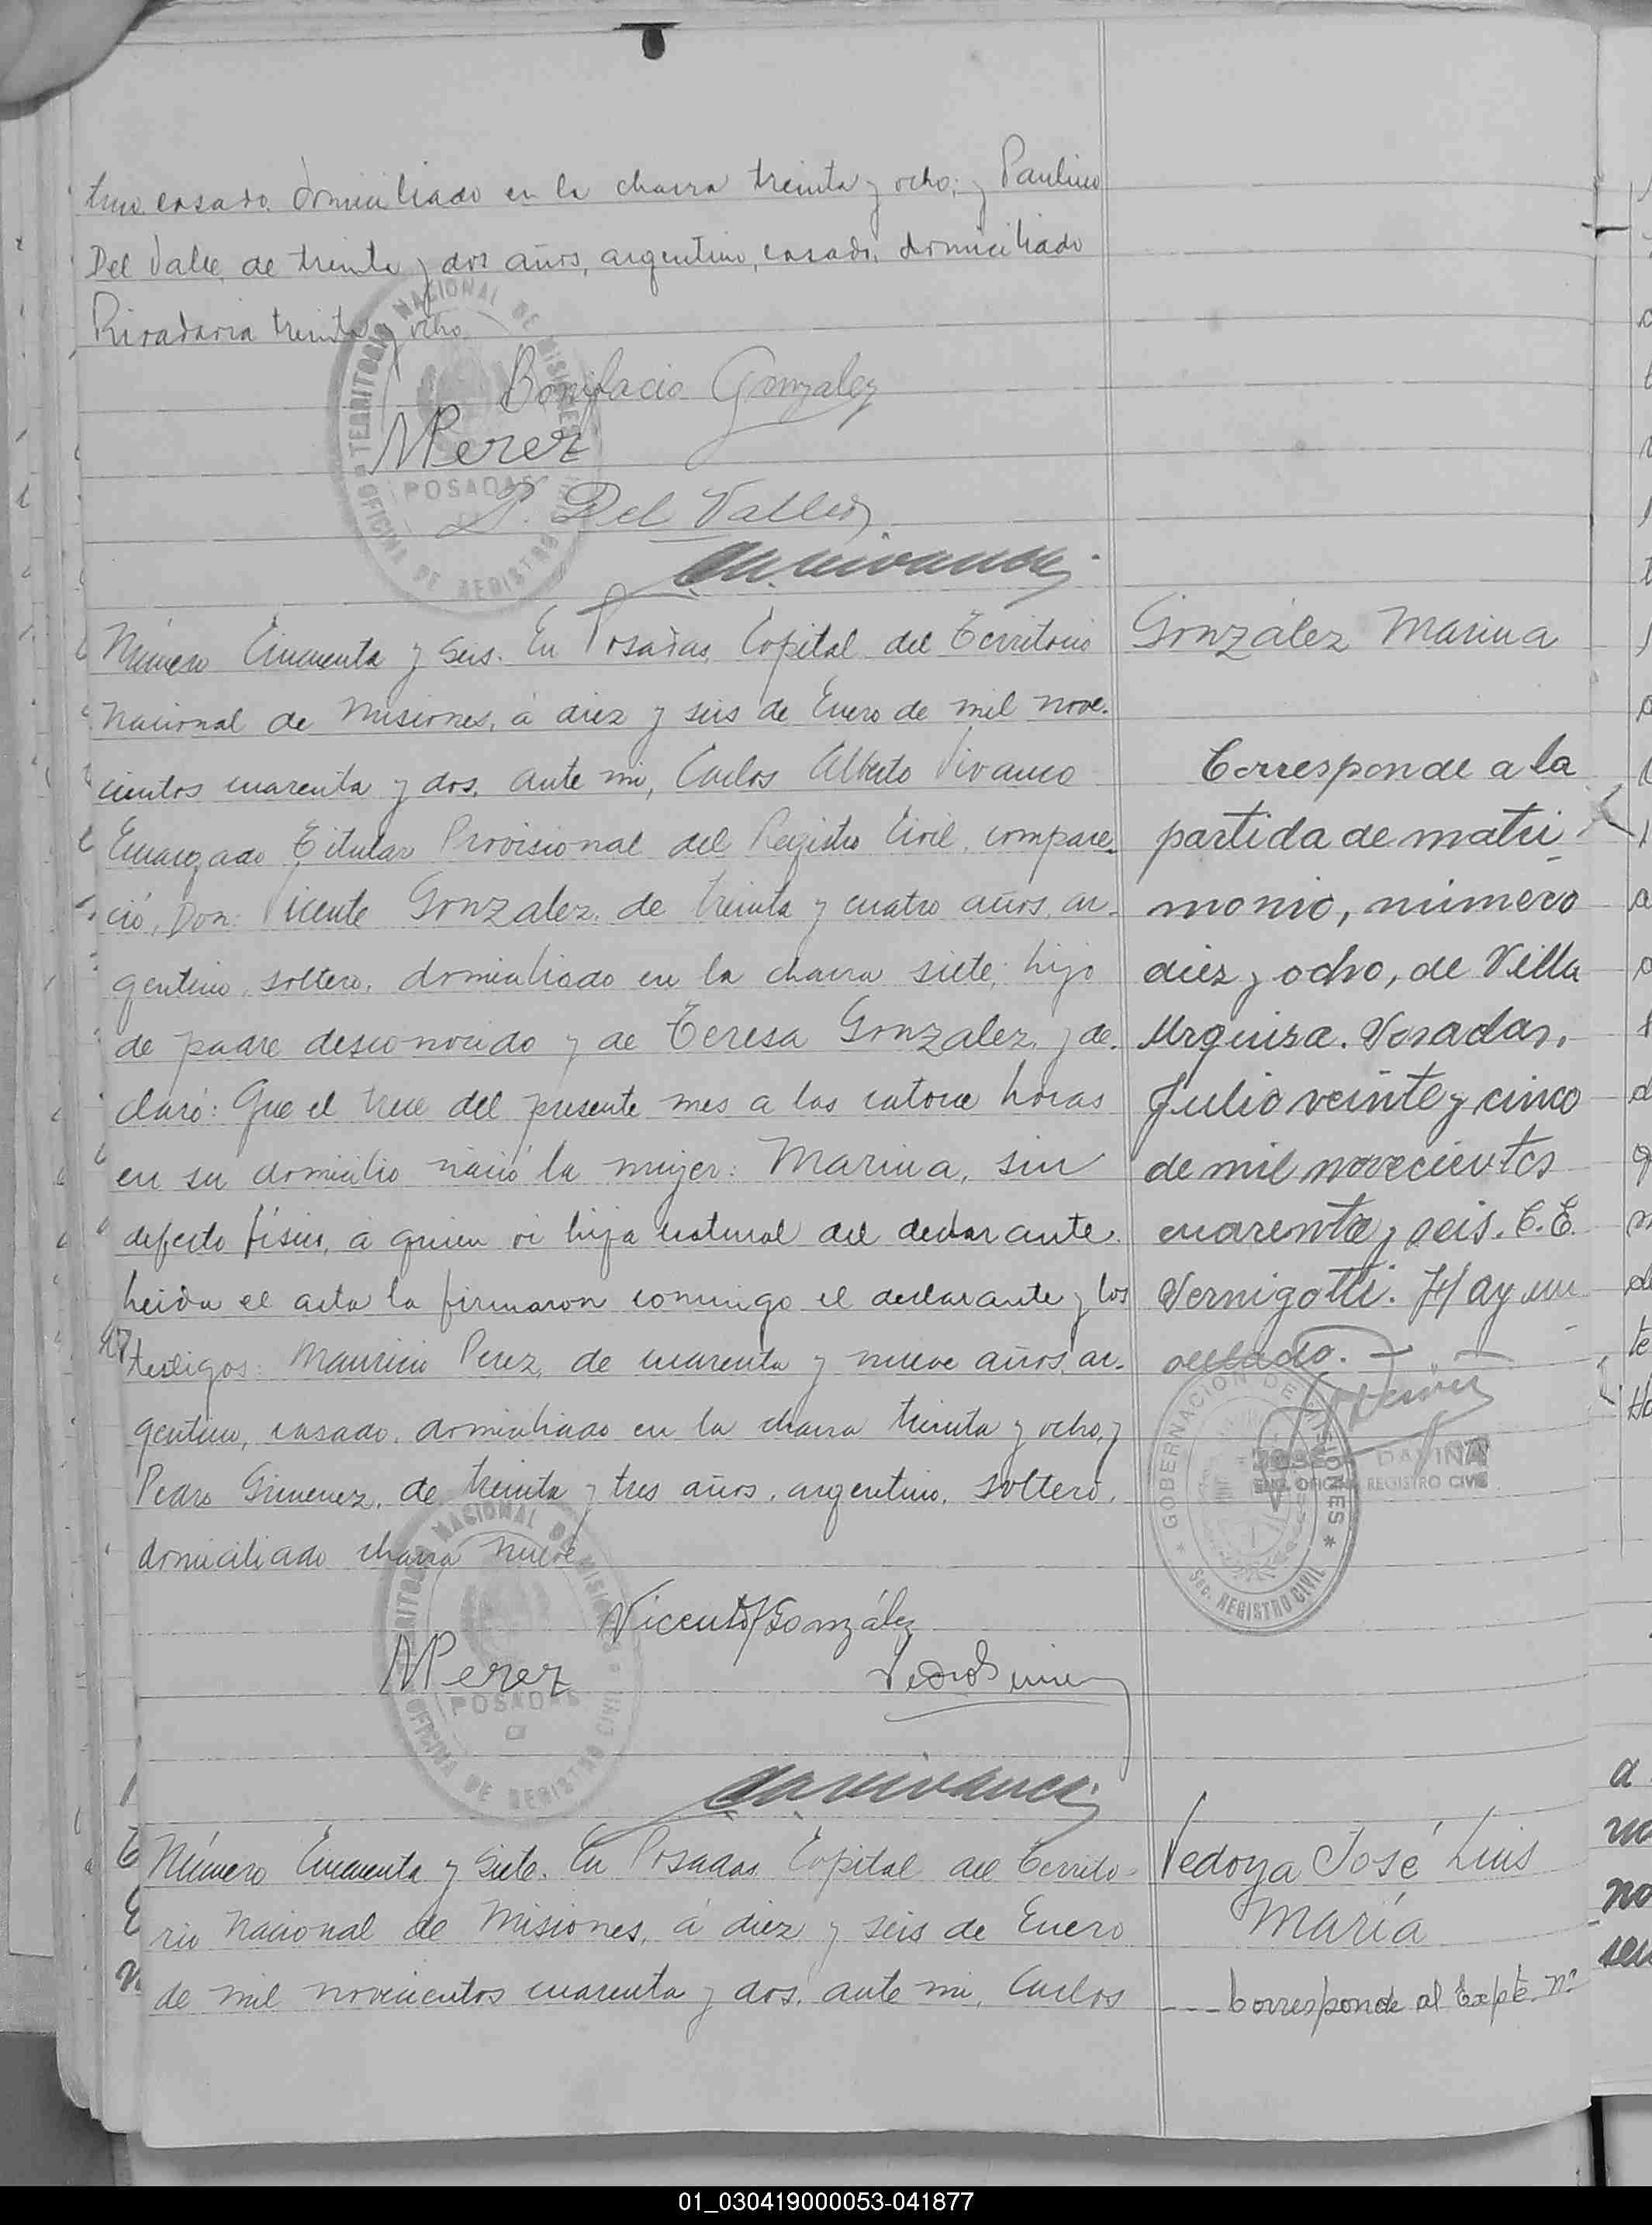 tino, casado, domiciliado en la chacra treinta y ocho; y Paulino
Del Valle, de treinta y dos años, argentino, casado, domiciliado
Rivadavia treinta y ocho.
TERRITORIO NACIONAL DE MISIONES
OFICINA DE REGISTRO CIVIL
POSADAS
Bonifacio Gonzalez
MPerez
P. Del Valle
Número Cincuenta y Seis. En Posadas, Capital del Territorio
Nacional de Misiones, á diez y seis de Enero de mil nove-
cientos cuarenta y dos, ante mi, Carlos Alberto Vivanco
Encargado Titular Provisional del Registro Civil, compare-
ció, Don: Vicente Gonzalez, de treinta y cuatro años, ar-
gentino, soltero, domiciliado en la chacra siete, hijo
de padre desconocido y de Teresa Gonzalez, y de-
claró: Que el trece del presente mes a las catorce horas
en su domicilio nació la mujer: Marina, sin
defecto físico, á quien vi hija natural del declarante.
Leida el acta la firmaron conmigo el declarante y los
testigos: Mauricio Perez, de cuarenta y nueve años, ar-
gentino, casado, domiciliado en la chacra treinta y ocho, y
Pedro Gimenez, de treinta y tres años, argentino, soltero,
domiciliado chacra nueve
TERRITORIO NACIONAL DE MISIONES
OFICINA DE REGISTRO CIVIL
POSADAS
Vicente González
MPerez
González Marina
Corresponde a la
partida de matri
monio, número
diez y ocho, de Villa
Urquiza. Posadas,
Julio veinte y cinco
de mil novecientos
cuarenta y seis. C.E.
Vernigotti. Hay un
sellado.
GOBERNACION DE MISIONES
Sec. REGISTRO CIVIL
REGISTRO CIVIL
Número Cincuenta y Siete. En Posadas, Capital del Territo-
rio Nacional de Misiones, á diez y seis de Enero
de mil novecientos cuarenta y dos, ante mi, Carlos
Vedoya José Luis
María
Corresponde al Expte. Nº
01_030419000053-041877